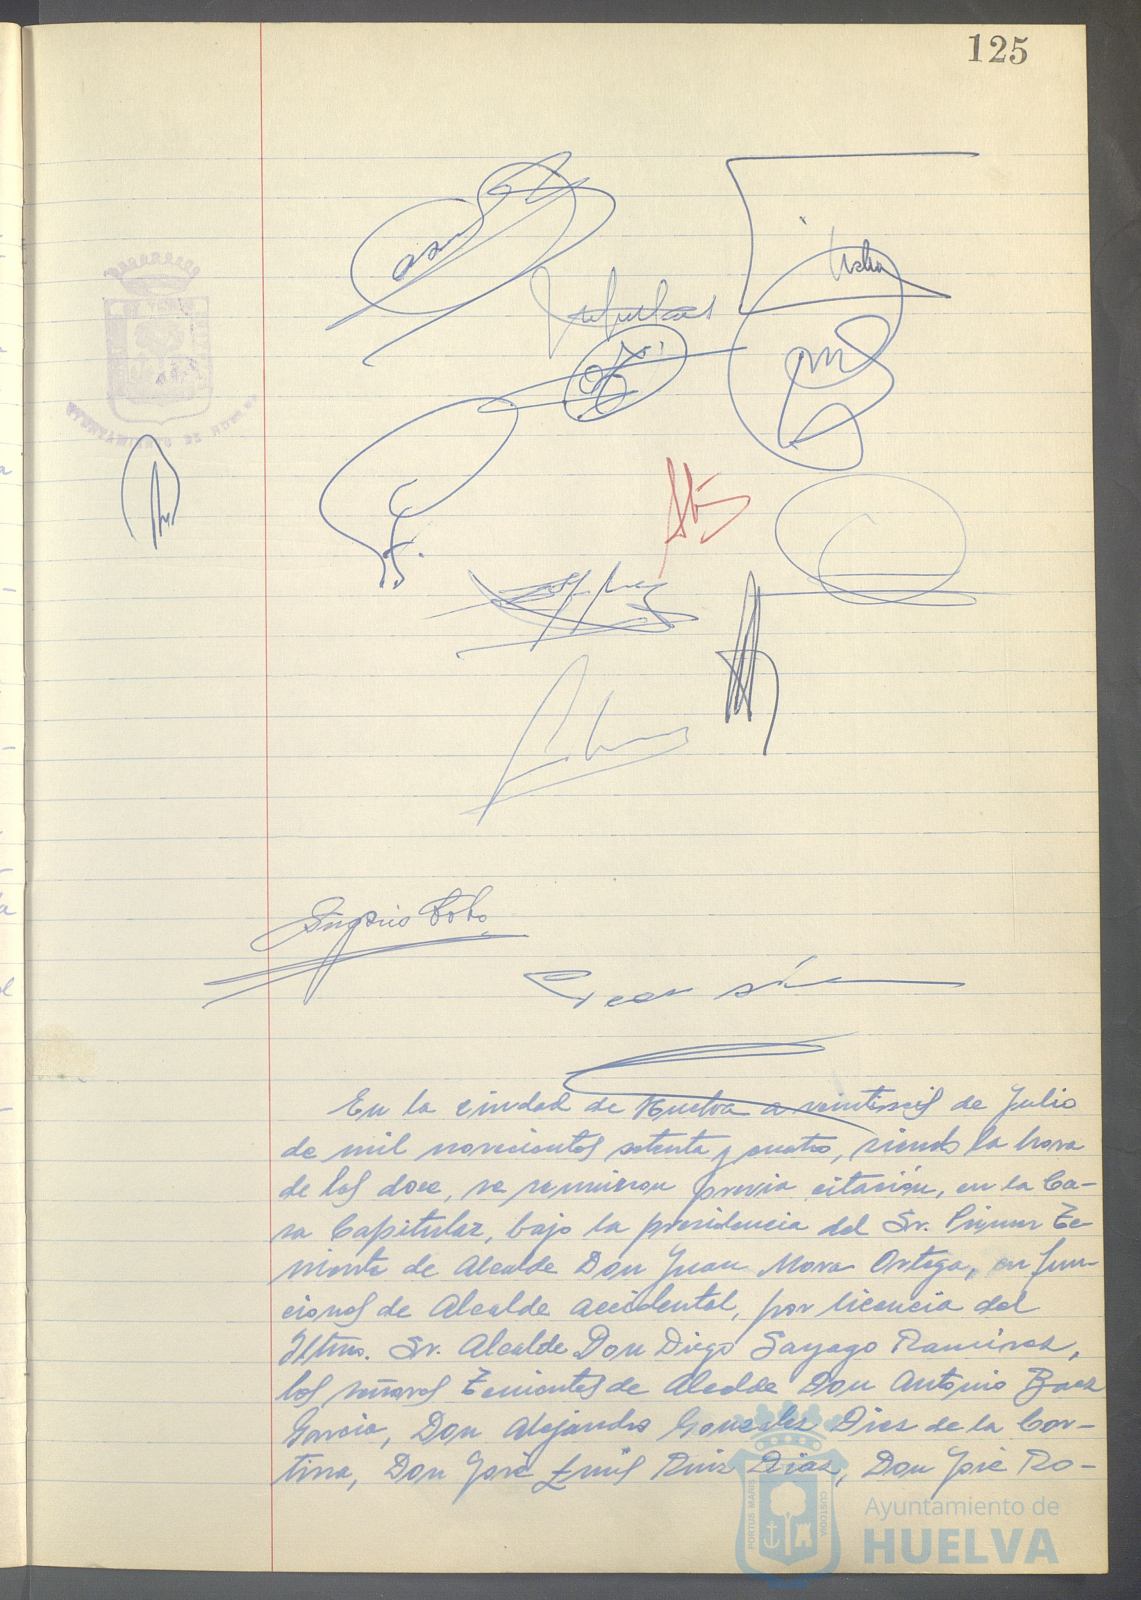 125
AYUNTAMIENTO DE HUELVA
Eugenio Toto
En la ciudad de Huelva a veintiseis de Julio
de mil novecientos setenta y cuatro, siendo la hora
de las doce, se reunieron previa citación, en la Ca-
sa Capitular, bajo la presidencia del Sr. Primer Te-
niente de Alcalde Don Juan Mora Ortega, en fun-
ciones de Alcalde accidental, por licencia del
Iltmo. Sr. Alcalde Don Diego Sayago Ramirez,
los señores Tenientes de Alcalde Don Antonio Baez
Garcia, Don Alejandro Gonzalez Diez de la Cor-
tina, Don José Luis Ruiz Diaz, Don José Ro-
PORTUS MARIS
CUSTODIA
Ayuntamiento de
HUELVA